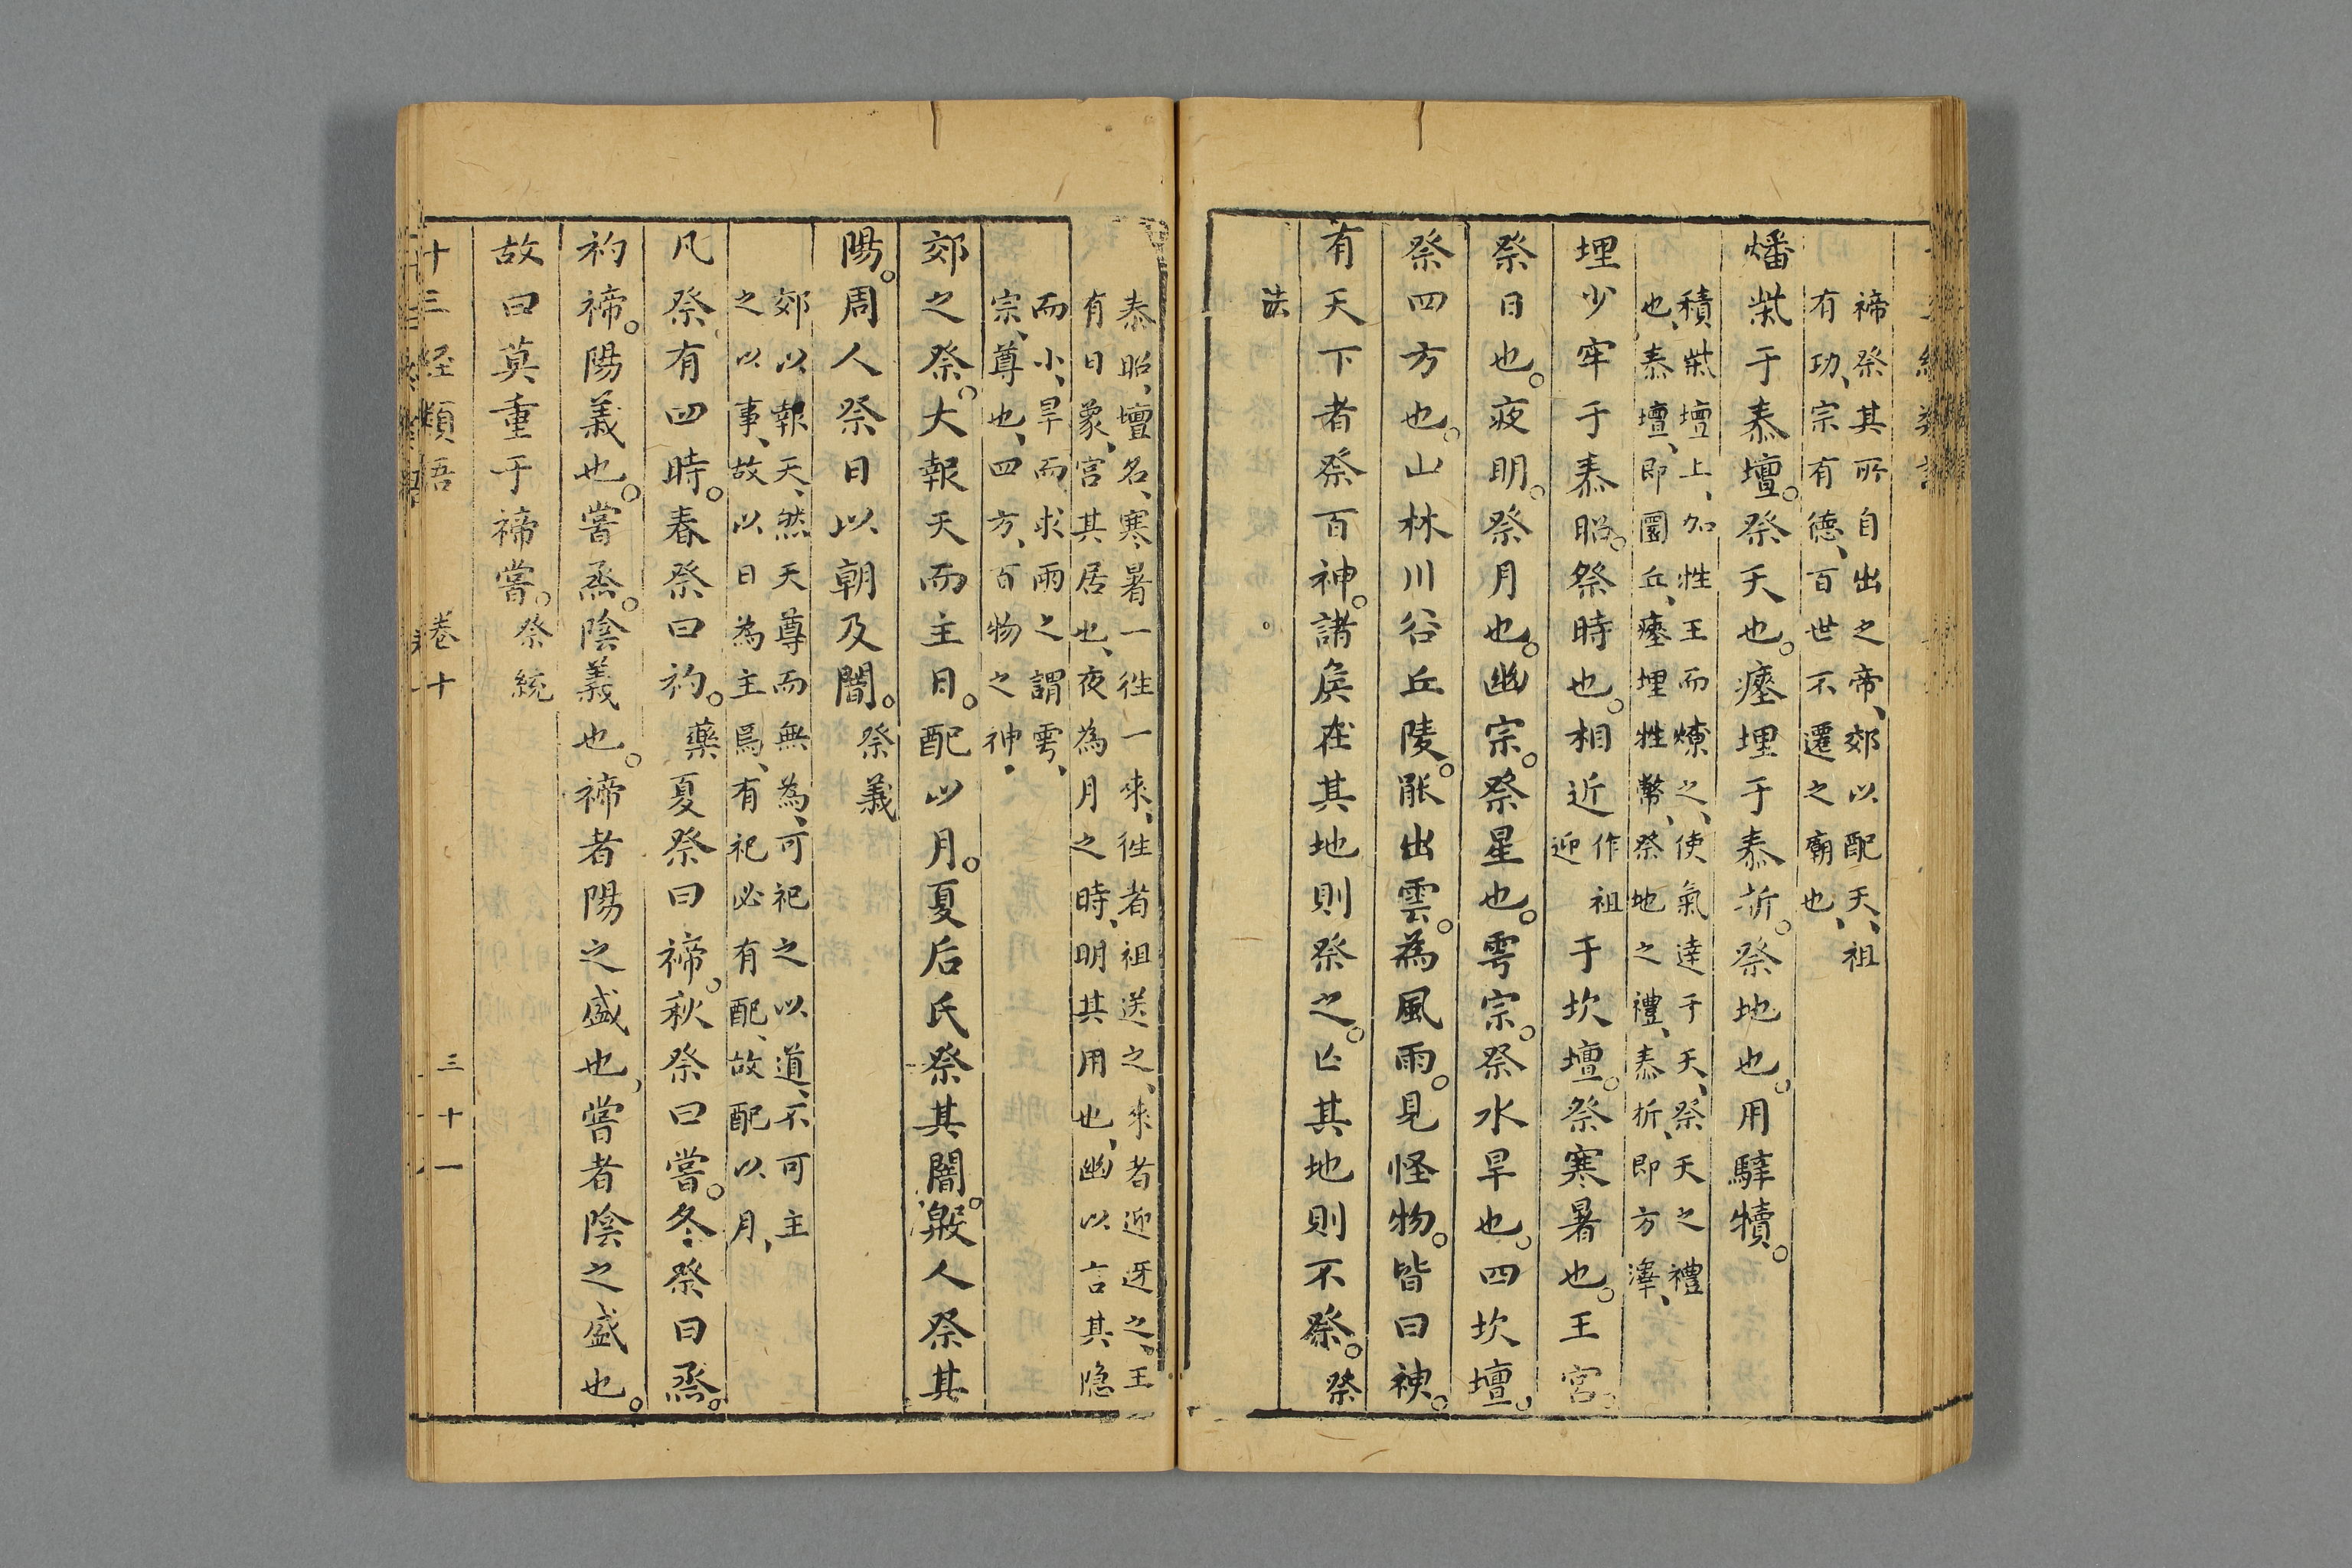 禘祭其所自出之帝、郊以配天、祖
有功、宗有德、百世不遷之廟也、
燔柴于泰壇。祭天也。瘞埋于泰折。祭地也。用騂犢。
積柴壇上、加牲王而燎之、使氣達于天、祭天之禮
也、泰壇、即圜丘、瘞埋牲幣、祭地之禮、泰折、即方澤、
埋少牢于泰昭。祭時也。相近作祖迎于坎壇。祭寒暑也。王宮。
祭日也。夜明。祭月也。幽宗。祭星也。雩宗。祭水旱也。四坎壇。
祭四方也。山林川谷丘陵。能出雲。為風雨。見怪物。皆曰神。
有天下者祭百神。諸侯在其地則祭之。亡其地則不祭。祭
法
泰昭、壇名、寒暑一徃一來、徃者祖送之、來者迎迓之、王
有日象、宮其居也、夜為月之時、明其用也、幽以言其隐
而小、旱而求雨之謂雩、
宗、尊也、四方、百物之神、
郊之祭。大報天而主日。配以月。夏后氏祭其闇。殷人祭其
陽。周人祭日以朝及闇。祭義
郊以報天、然天尊而無為、可祀之以道、不可主
之以事、故以日為主焉、有祀必有配、故配以月、
凡祭有四時。春祭曰礿。藥夏祭曰禘。秋祭曰嘗。冬祭曰烝。
礿禘。陽義也。嘗烝。陰義也。禘者陽之盛也、嘗者陰之盛也。
故曰莫重于禘嘗。祭統
十三经類语 卷十 三十一